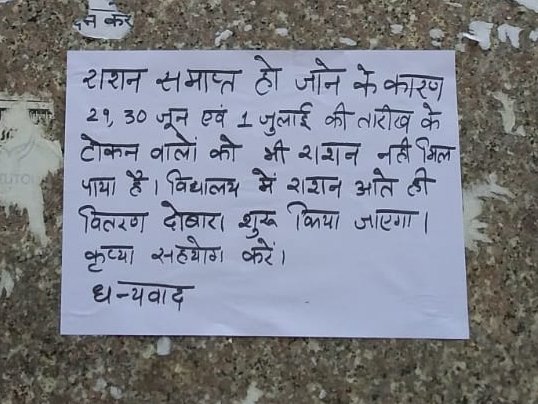 न करें
राशन समाप्त हो जाने के कारण
29, 30 जून एवं 1 जुलाई की तारीख के
टोकन वालों को भी राशन नही मिल
पाया है। विद्यालय में राशन आते ही
वितरण दोबारा शुरू किया जाएगा।
कृप्या सहयोग करें।
धन्यवाद